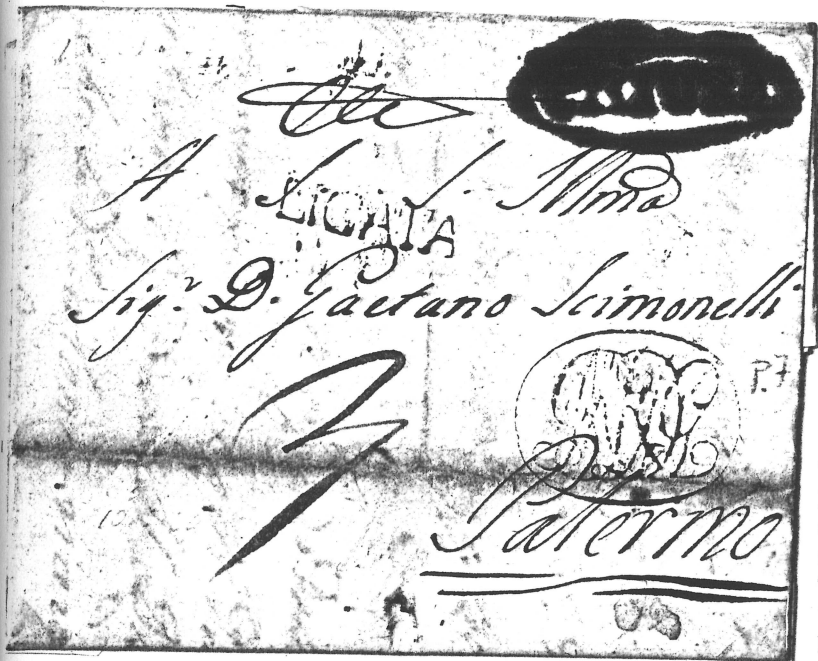 A S. S. Illma
LICATA
Sigr. D. Gaetano Scimonelli
3
P.7
Palermo